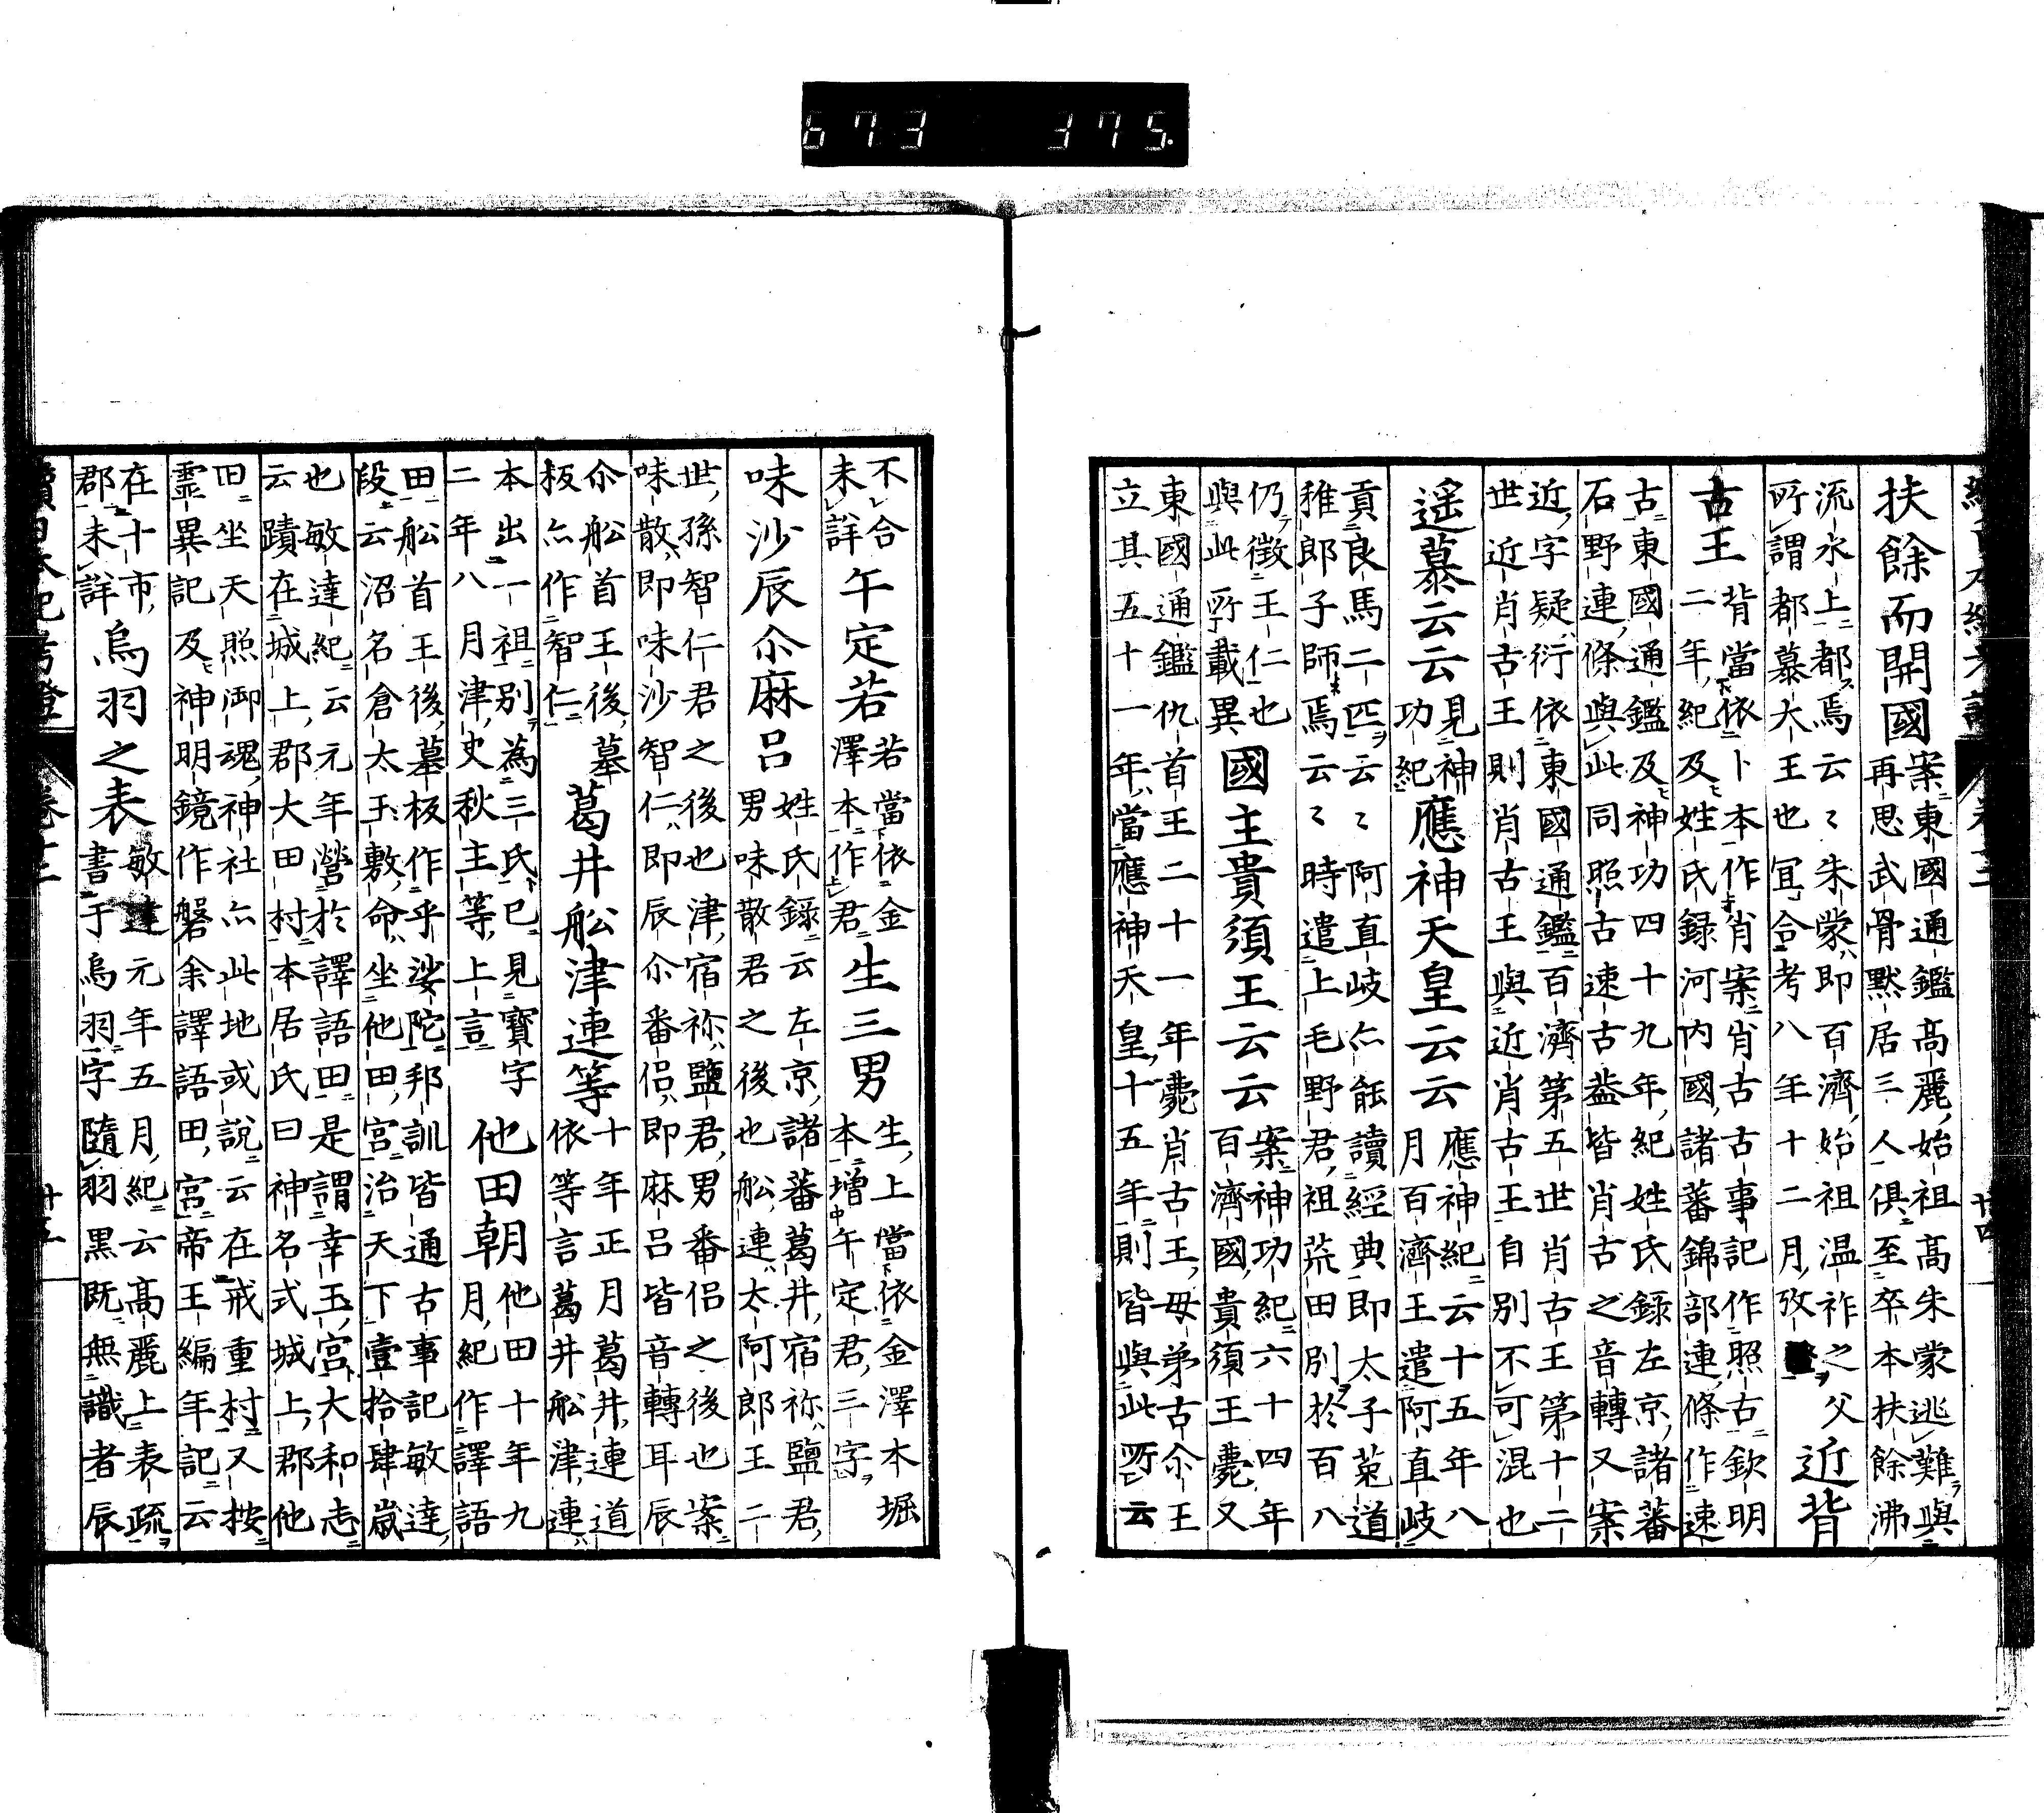 扶餘而開國
案東國通鑑高麗始祖高朱蒙逃難與
再思武骨默居三人俱至卒本扶餘沸
流水上都焉云〻朱蒙即百濟始祖温祚之父
所謂都慕大王也宜合考八年十二月攷
近背
古王
背當依卜本作肖案肖古古事記作照古欽明
二年紀及姓氏録河内國諸蕃錦部連條作速
古東國通鑑及神功四十九年紀姓氏録左京諸蕃
石野連條與此同照古速古盖皆肖古之音轉又案
近字疑衍依東國通鑑百濟第五世肖古王第十二
世近肖古王則肖古王與近肖古王自別不可混也
遥慕云云
見神
功紀
應神天皇云云
應神紀云十五年八
月百濟王遣阿直岐
貢良馬二匹云〻阿直岐亦能讀經典即太子菟道
稚郎子師焉云〻時遣上毛野君祖荒田別於百八
仍徴王仁也
與此所載異
國主貴須王云云
案神功紀六十四年
百濟國貴須王薨又
東國通鑑仇首王二十一年薨肖古王母弟古尒王
立其五十一年當應神天皇十五年則皆與此所云
不合
未詳
午定若
若當依金
澤本作君
生三男
生上當依金澤本堀
本増中午定君三字
味沙辰尒麻呂
姓氏録云左京諸蕃葛井宿祢鹽君
男味散君之後也船連太阿郎王二
世孫智仁君之後也津宿祢鹽君男番侶之後也案
味散即味沙智仁即辰尒番侶即麻呂皆音轉耳辰
尒船首王後墓
板亦作智仁
葛井船津連等
十年正月葛井連道
依等言葛井船津連
本出一祖別為三氏已見寶字
二年八月津史秋主等上言
他田朝
他田十年九
月紀作譯語
田船首王後墓板作乎娑陀邦訓皆通古事記敏達
段云沼名倉太玉敷命坐他田宮治天下壹拾肆嵗
也敏達紀云元年營於譯語田是謂幸玉宮大和志
云蹟在城上郡大田村本居氏曰神名式城上郡他
田坐天照御魂神社亦此地或說云在戒重村又按
靈異記及神明鏡作磐余譯語田宮帝王編年記云
在十市
郡未詳
烏羽之表
敏達元年五月紀云高麗上表疏
書于烏羽字隨羽黑既無識者辰
卷十三
廿四
卷十三
廿五